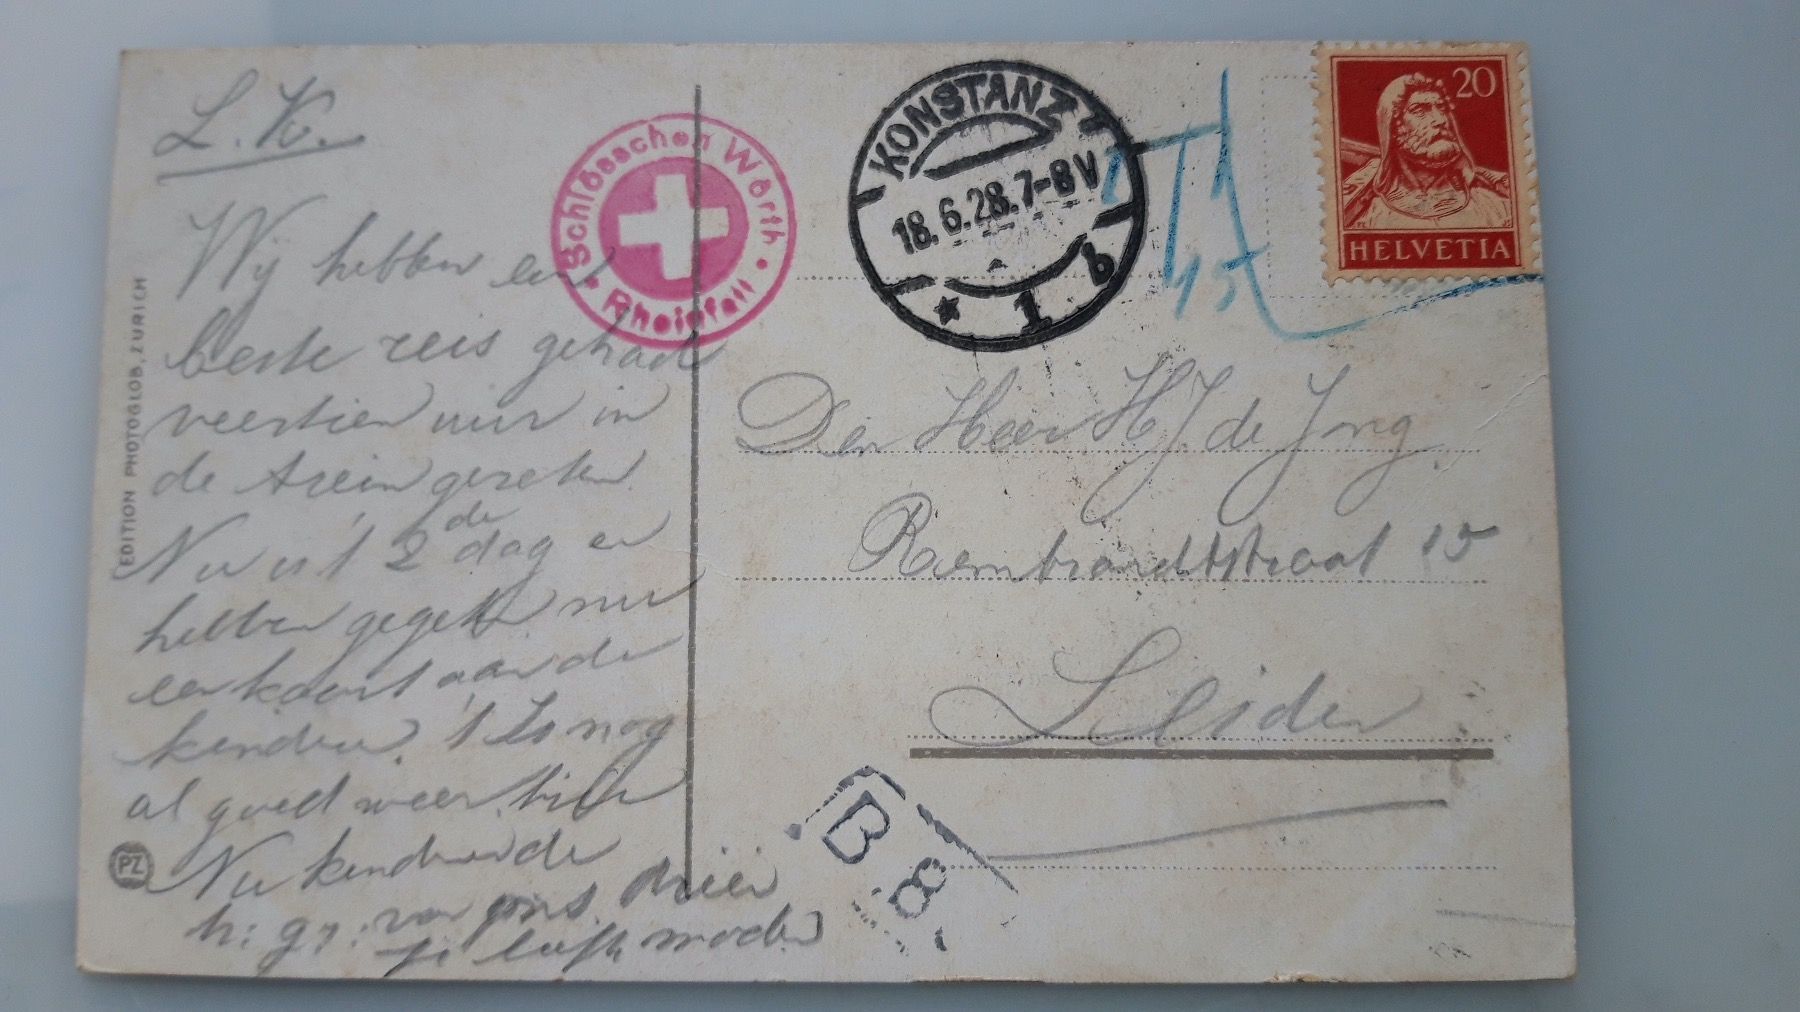 L. K.
Wij hebben een
beste reis gehad
veertien uur in
de trein gezeten
Nu is 't 2de dag en
hebben gegeten nu
een kaart aan de
kinderen. 't Is nog
al goed weer hier
Nu kinderen de
h: gr: van ons drieën
je liefh moeder
EDITION PHOTOGLOB, ZÜRICH
PZ
Schlösschen Wörth
Rheinfall
KONSTANZ
18.6.28.7-8V
* 1 b
T
20
HELVETIA
Den Heer H.J. de Jong
Rembrandtstraat 15
Leiden
B
8